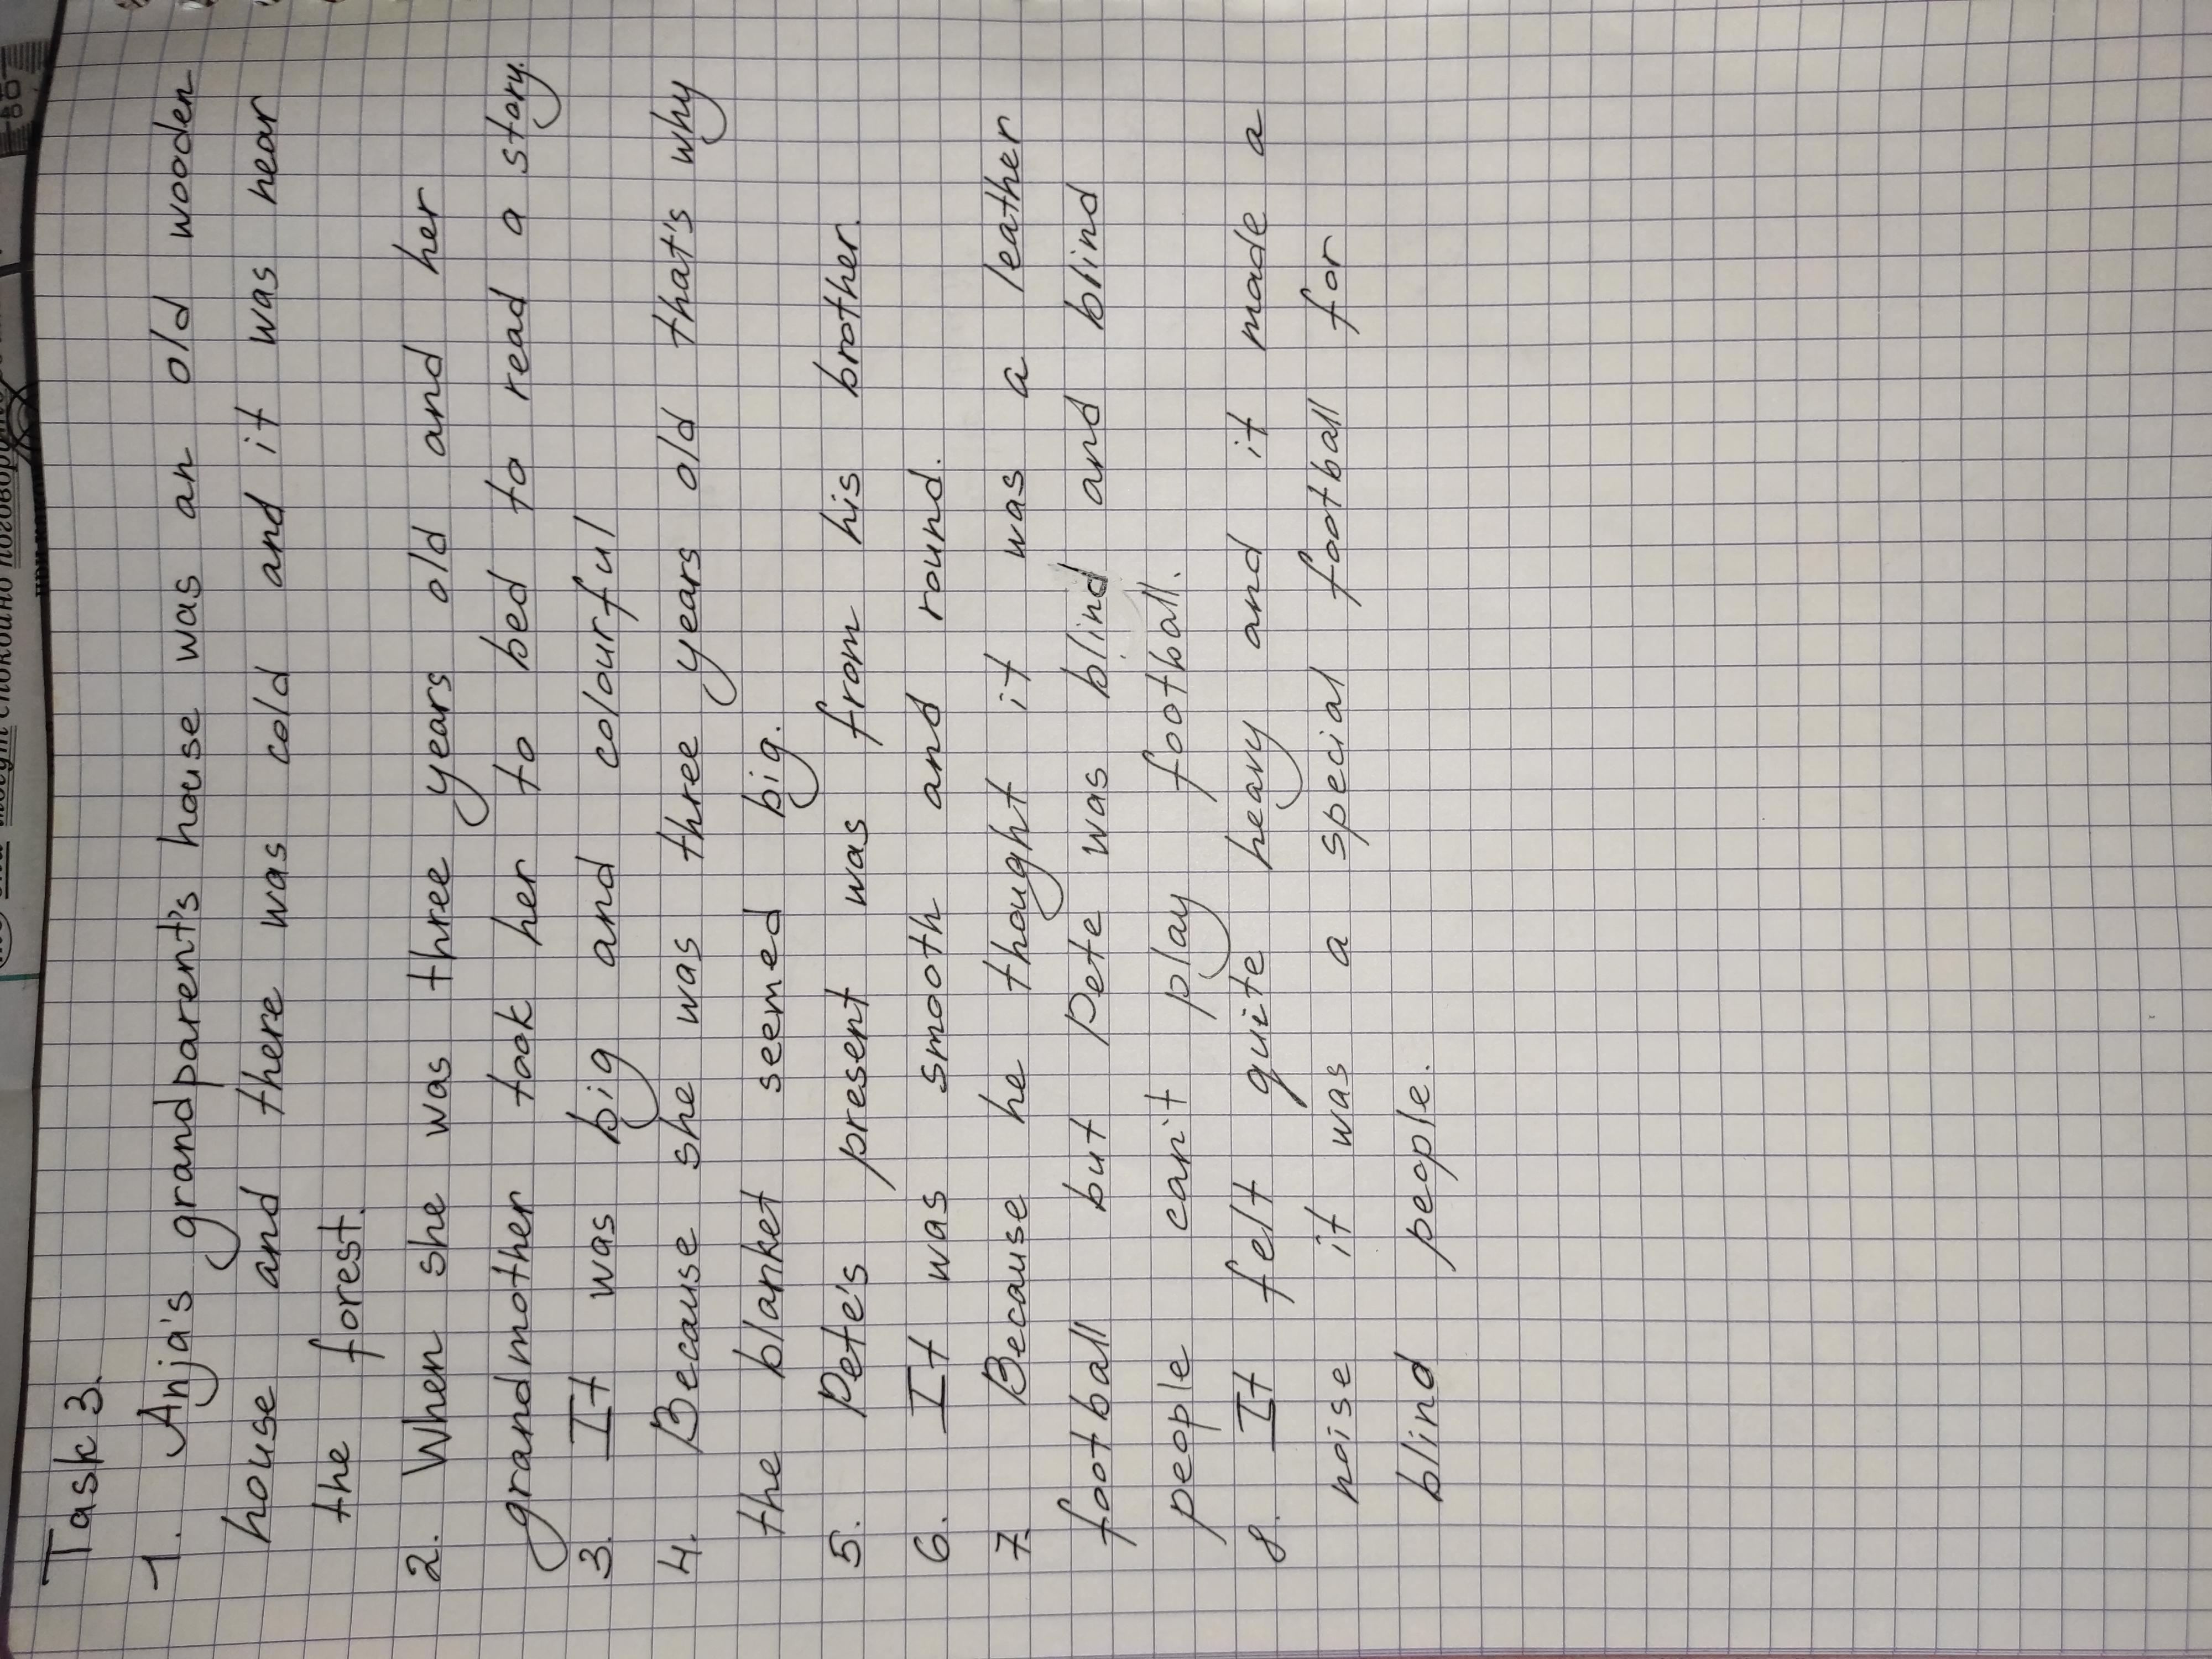 Task 3.
1. Anja's grandparent's house was an old wooden
house and there was cold and it was near
the forest.
2. When she was three years old and her
grandmother took her to bed to read a story.
3. It was big and colourful
4. Because she was three years old that's why
the blanket seemed big.
5. Pete's present was from his brother.
6. It was smooth and round.
7. Because he thought it was a leather
football but Pete was blind and blind
people can't play football.
8. It felt quite heavy and it made a
noise it was a special football for
blind people.
спокойно